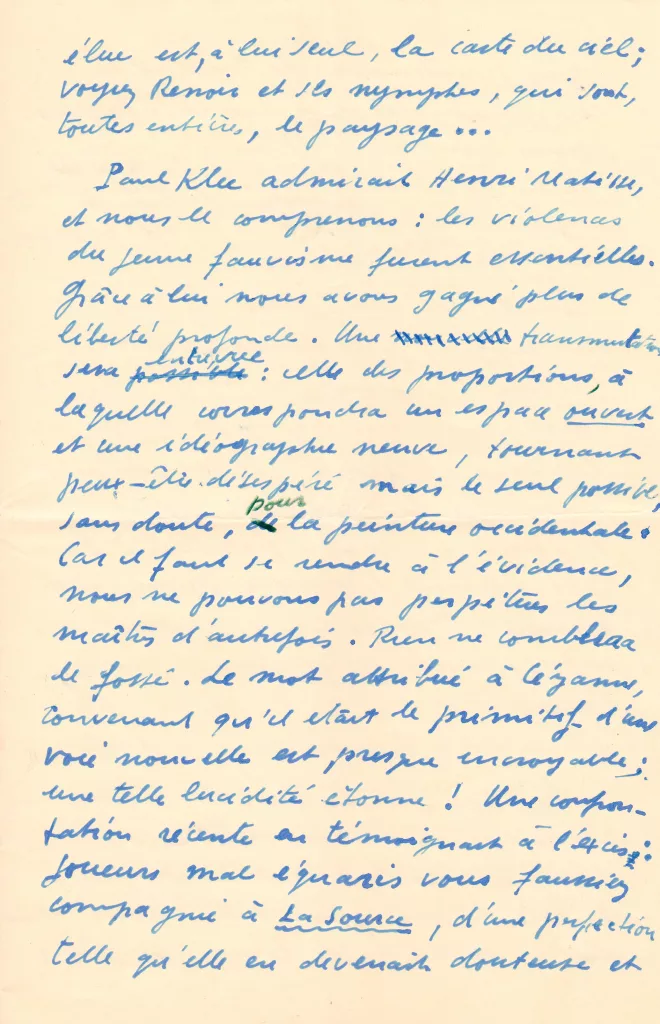 élue est, à lui seul, la carte du ciel ;
voyez Renoir et ses nymphes, qui sont,
toutes entières, le paysage...
Paul Klee admirait Henri Matisse,
et nous le comprenons : les violences
du jeune fauvisme furent essentielles.
Grâce à lui nous avons gagné plus de
liberté profonde. Une transmutation
sera possible entrevue : celle des proportions, à
laquelle correspondra un espace ouvert
et une idéographie neuve, tournant
peut-être désespéré mais le seul possible,
sans doute, de pour la peinture occidentale.
Car il faut se rendre à l'évidence,
nous ne pouvons pas perpétuer les
maîtres d'autrefois. Rien ne comblera
le fossé. Le mot attribué à Cézanne,
convenant qu'il était le primitif d'une
voie nouvelle est presque incroyable ;
une telle lucidité étonne ! Une confron-
tation récente en témoignait à l'excès :
joueurs mal équaris vous faussiez
compagnie à La Source, d'une perfection
telle qu'elle en devenait douteuse et